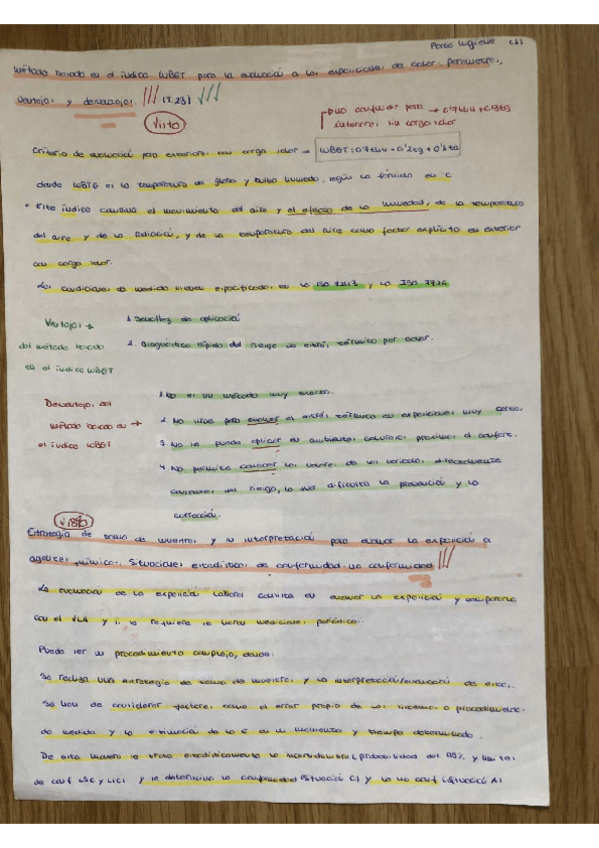 Método basado en el índice WBGT para la evaluación a las exposiciones de calor: parámetros,
ventajas y desventajas. /// (T.23)
Visto
Criterio de evaluación para exteriores con carga solar → WBGT = 0'7thn + 0'2tg + 0'1ta
donde WBGT es la temperatura de globo y bulbo húmedo, según la fórmula en °C
• Este índice combina el movimiento del aire y el efecto de la humedad, de la temperatura
del aire y de la radiación, y de la temperatura del aire como factor explícito en exterior
con carga solar.
Las condiciones de medida vienen especificadas en la ISO 7243 y la ISO 7726
Ventajas →
del método basado
en el índice WBGT
1. Sencillez de aplicación
2. Diagnóstico rápido del riesgo de estrés térmico por calor.
Desventajas del
método basado en →
el índice WBGT
1. No es un método muy exacto.
2. No sirve para evaluar el estrés térmico en exposiciones muy cortas.
3. No se puede aplicar en ambientes calurosos próximos al confort.
4. No permite conocer los valores de las variables directamente
causantes del riesgo, lo que dificulta la prevención y la
corrección.
Visto
Estrategia de toma de muestras y su interpretación para evaluar la exposición a
agentes químicos. Situaciones estadísticas de conformidad-no conformidad ///
La evaluación de la exposición laboral consiste en evaluar la exposición y compararla
con el VLA y si lo requiere se harán mediciones periódicas.
Puede ser un procedimiento complejo, donde:
Se realiza una estrategia de toma de muestras y la interpretación/evaluación de esta.
Se han de considerar factores como el error propio de los sistemas o procedimientos
de medida y la estimación de la C en un momento y tiempo determinado.
De esta manera se trata estadísticamente la incertidumbre (probabilidad del 95%, y límites
de conf LSC y LIC) y se determina la conformidad (Situación C) y la no conf (Situación A)